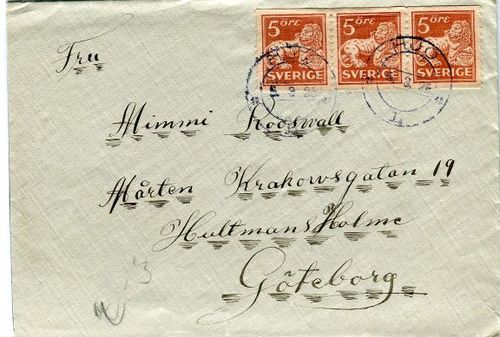 5 ÖRE 5 ÖRE 5 ÖRE
SVERIGE SVERIGE SVERIGE
HJO
Fru
Mimmi Rooswall
Mårten Krakowsgatan 19
Hultmans Holme
Göteborg